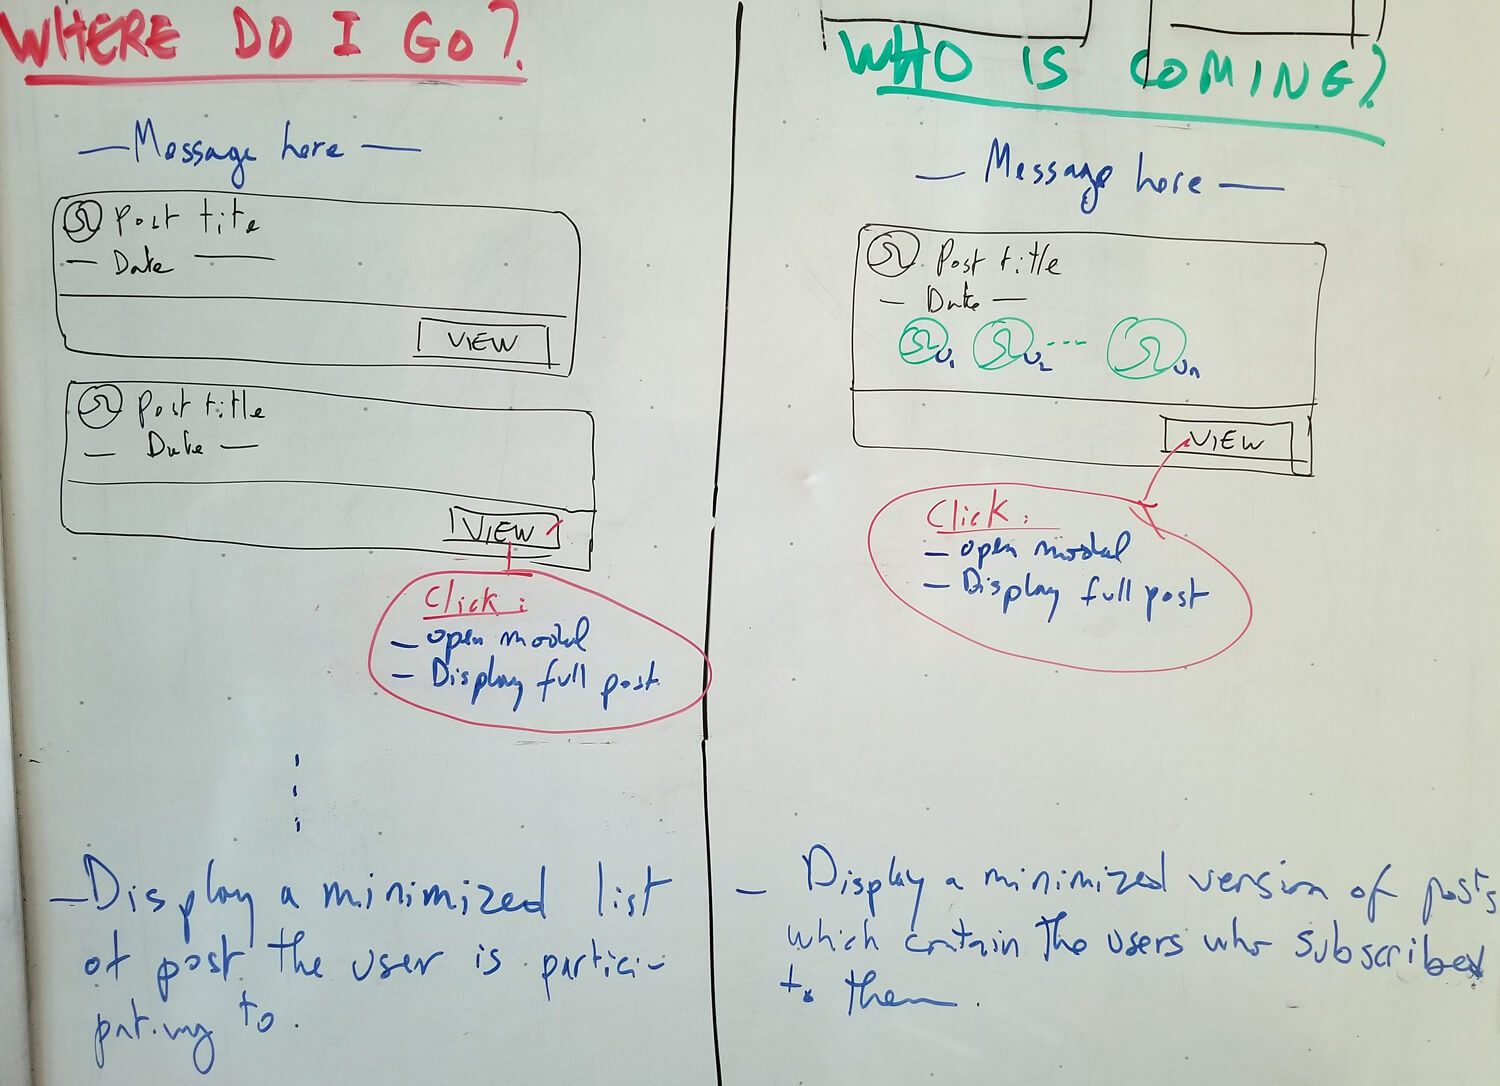 WHERE DO I GO?
— Message here —
Post tite
— Date —
VIEW
Post title
— Date —
VIEW
Click:
— open modal
— Display full post
— Display a minimized list
of post the user is partici-
pating to.
WHO IS COMING?
— Message here —
Post title
— Date —
U1 U2 --- Un
VIEW
Click:
— open modal
— Display full post
— Display a minimized version of posts
which contain the users who subscribed
to them.